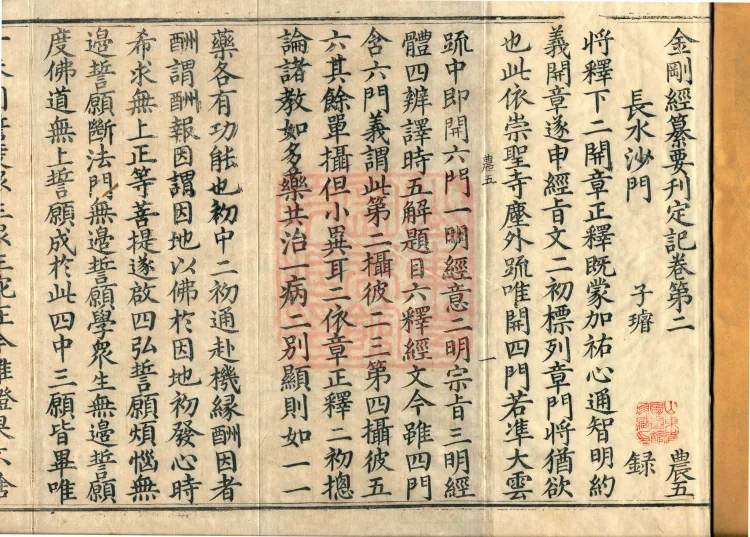 金剛經纂要刊定記卷第二 農五
長水沙門 子璿 録
將釋下二開章正釋既蒙加祐心通智明約
義開章遂申經旨文二初標列章門將猶欲
也此依崇聖寺塵外䟽唯開四門若準大雲
農五
一
䟽中即開六門一明經意二明宗旨三明經
體四辨譯時五解題目六釋經文今雖四門
含六門義謂此第二攝彼二三第四攝彼五
六其餘單攝但小異耳二依章正釋二初揔
論諸教如多藥共治一病二別顯則如一一
藥各有功能也初中二初通赴機緣酬因者
酬謂酬報因謂因地以佛於因地初發心時
希求無上正等菩提遂啟四弘誓願煩惱無
邊誓願斷法門無邊誓願學眾生無邊誓願
度佛道無上誓願成於此四中三願皆畢唯